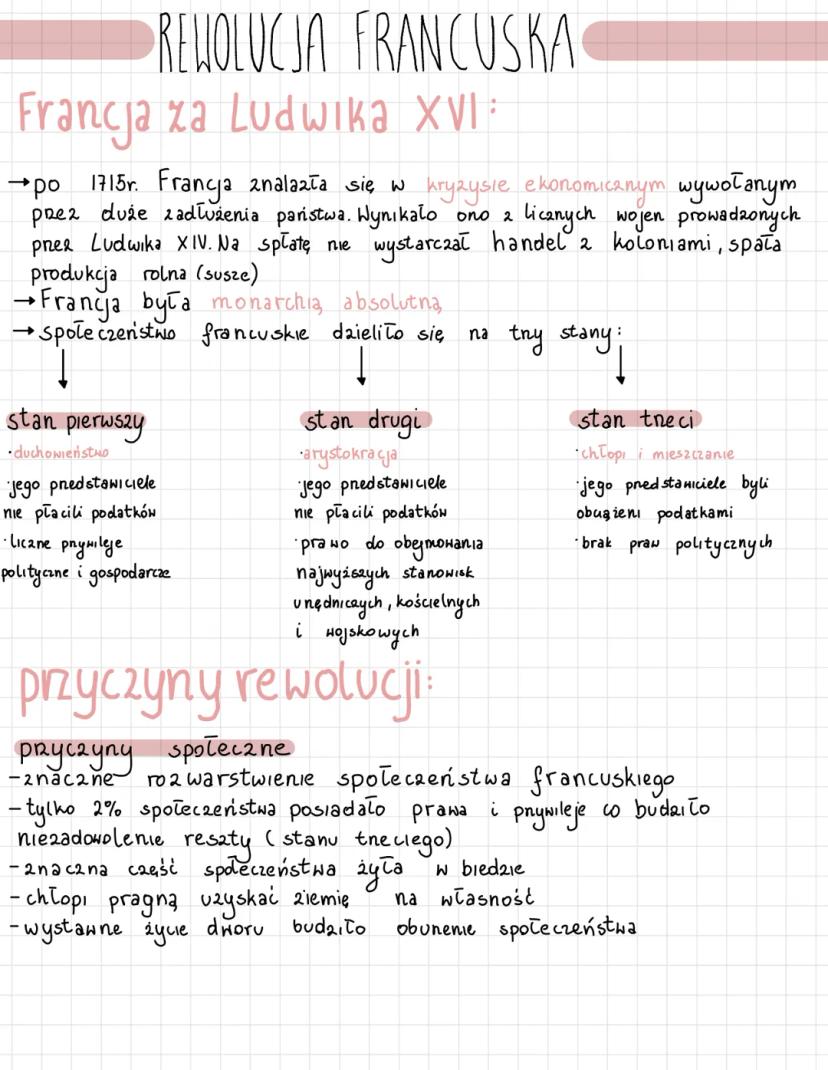 REWOLUCJA FRANCUSKA
Francja za Ludwika XVI:
→ po 1715r. Francja znalazła się w kryzysie ekonomicznym wywołanym
przez duże zadłużenia państwa. Wynikało ono z licznych wojen prowadzonych
przez Ludwika XIV. Na spłatę nie wystarczał handel z koloniami, spała
produkcja rolna (susze)
→ Francja była monarchią absolutną
→ społeczeństwo francuskie dzieliło się na trzy stany:
stan pierwszy
· duchowieństwo
· jego przedstawiciele
nie płacili podatków
· liczne przywileje
polityczne i gospodarcze
stan drugi
· arystokracja
· jego przedstawiciele
nie płacili podatków
· prawo do obejmowania
najwyższych stanowisk
urzędniczych, kościelnych
i wojskowych
stan trzeci
· chłopi i mieszczanie
· jego przedstawiciele byli
obciążeni podatkami
· brak praw politycznych
przyczyny rewolucji:
przyczyny społeczne
- znaczne rozwarstwienie społeczeństwa francuskiego
- tylko 2% społeczeństwa posiadało prawa i przywileje co budziło
niezadowolenie reszty (stanu trzeciego)
- znaczna część społeczeństwa żyła w biedzie
- chłopi pragną uzyskać ziemię na własność
- wystawne życie dworu budziło oburzenie społeczeństwa